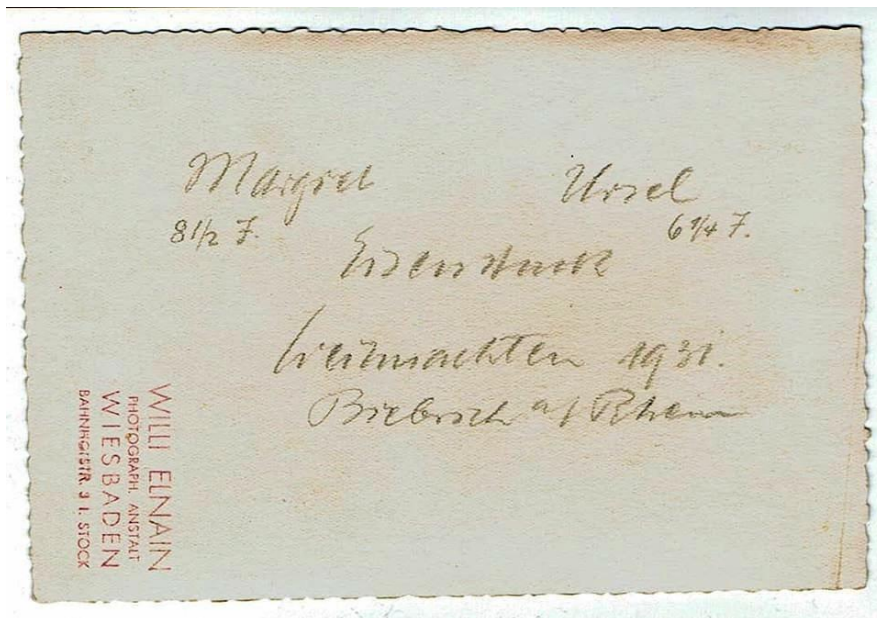 Margret Ursel
8 1/2 J. 6 1/4 J.
Eisenstuck
Weihnachten 1931.
Biebrich a/ Rhein
WILLI ELNAIN
PHOTOGRAPH. ANSTALT
WIESBADEN
BAHNHOFSTR. 3 I. STOCK